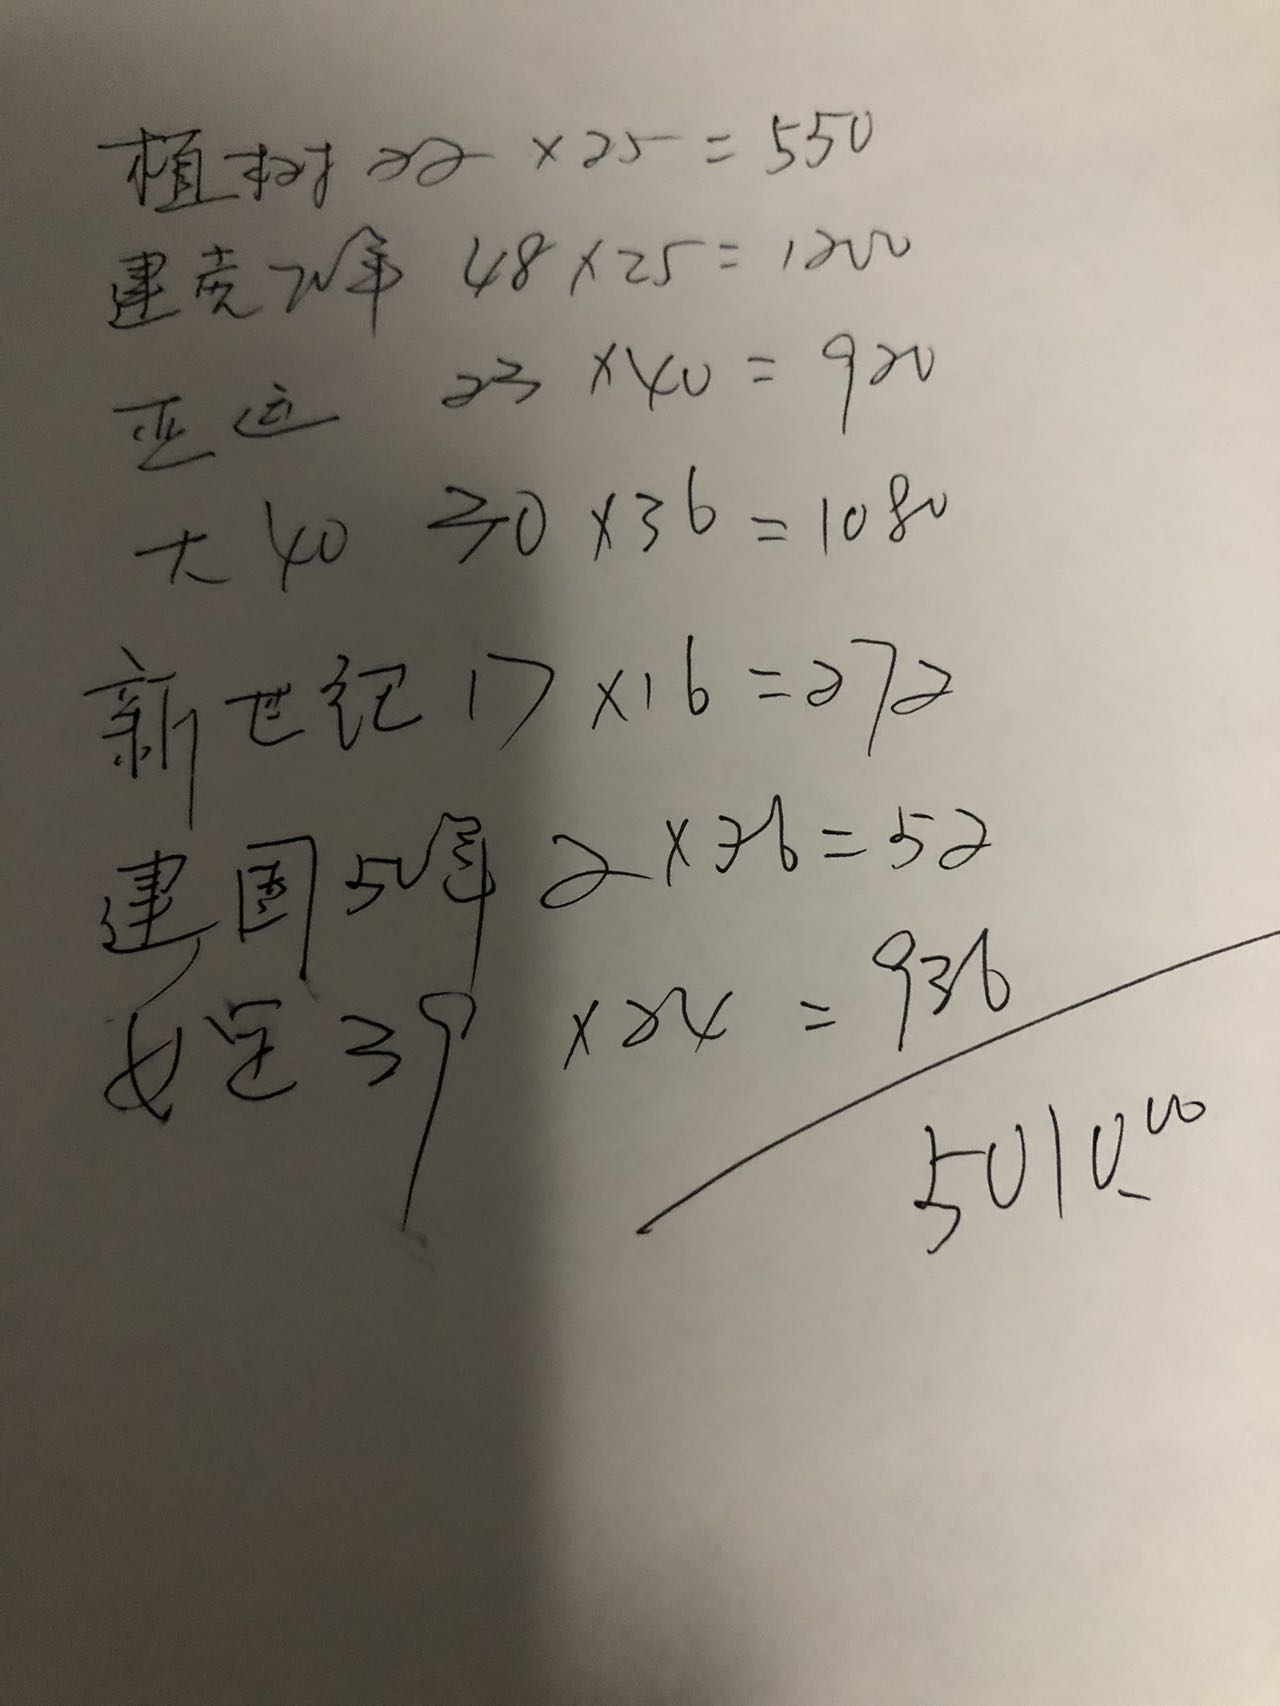 植树 22 ×25=550
建党70年 48×25=1200
亚运 23 ×40=920
大40 30×36=1080
新世纪17×16=272
建国50年2×26=52
女足39 ×24=936
5010.00